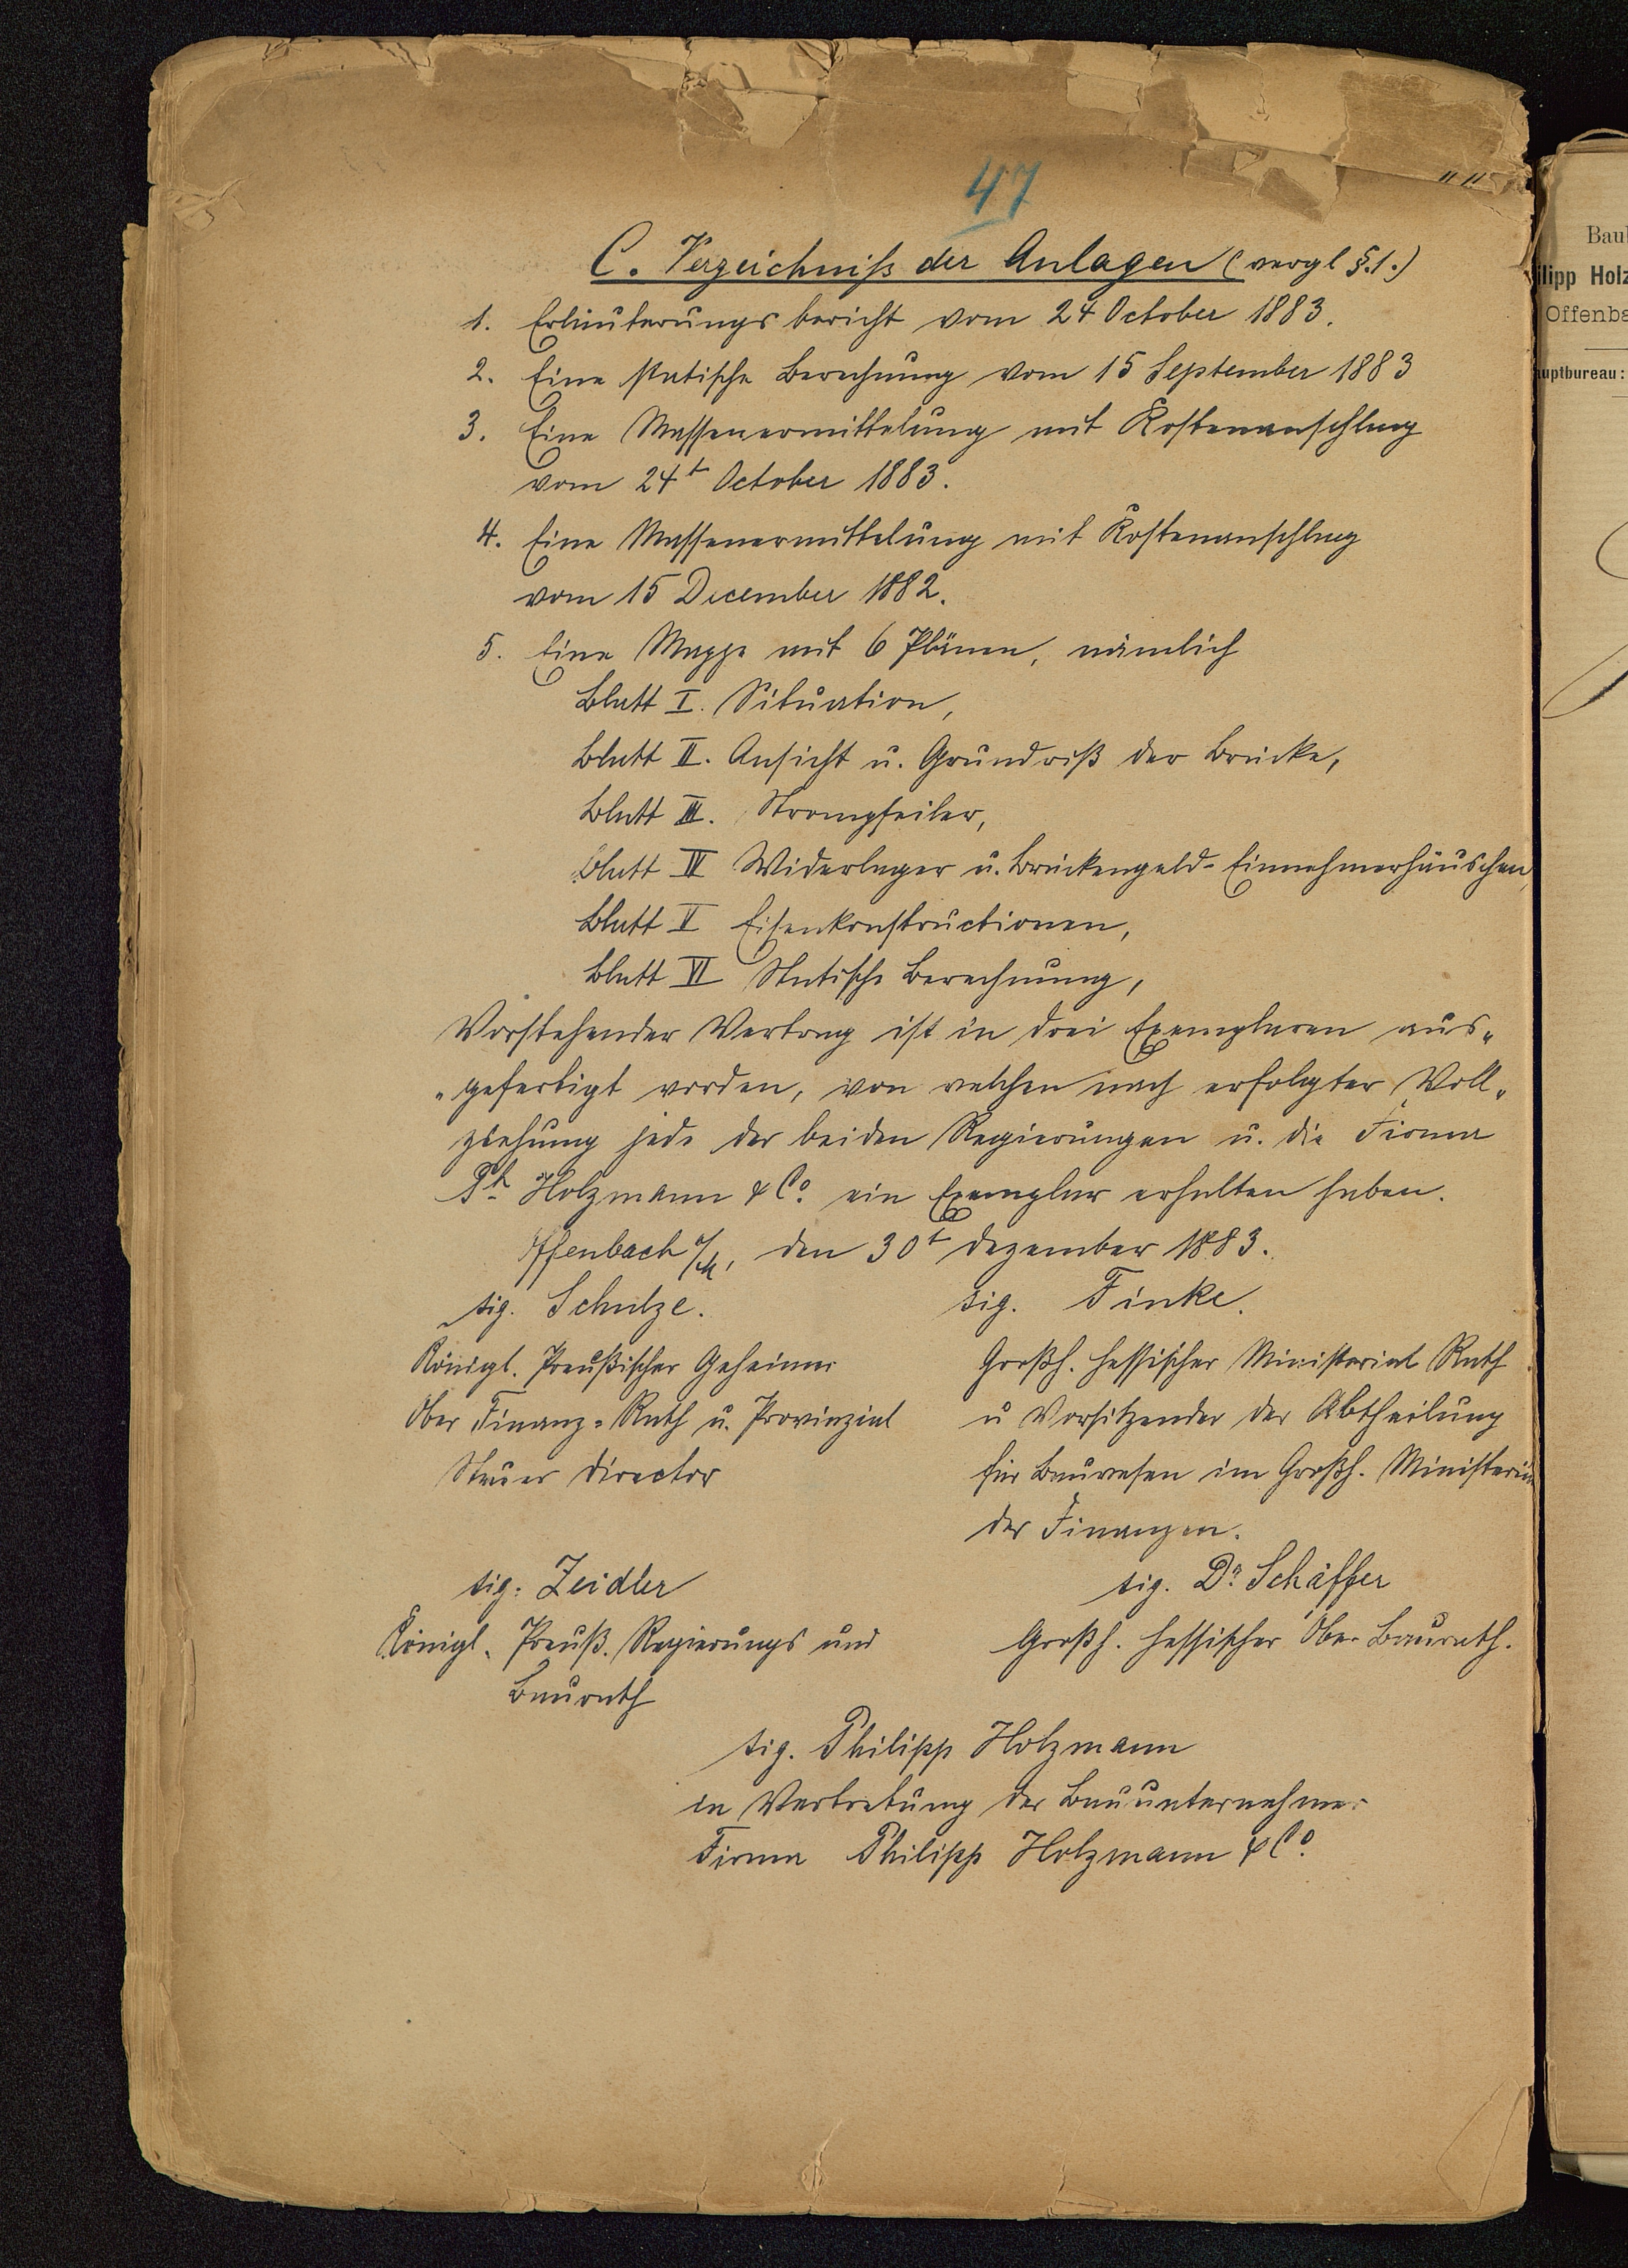 47
" "
C. Verzeichniß der Anlagen (vergl §.1.)
1. Erläuterungsbericht vom 24 October 1883.
2. Eine statische Berechnung vom 15 September 1883
3. Eine Massenermittelung mit Kostenanschlag
vom 24t October 1883.
4. Eine Massenermittelung mit Kostenanschlag
vom 15 December 1882.
5. Eine Mappe mit 6 Plänen, nämlich
Blatt I. Situation,
Blatt II. Ansicht u. Grundriß der Brücke,
Blatt III. Strompfeiler,
Blatt IV Widerlager u. Brückengeld-Einnehmerhäuschen,
Blatt V Eisenkonstructionen,
Blatt VI Statische Berechnung,
Vorstehender Vertrag ist in drei Exemplaren aus-
-gefertigt worden, von welchen nach erfolgter Voll-
ziehung jede der beiden Regierungen u. die Firma
Ph Holzmann & Co. ein Exemplar erhalten haben.
Offenbach a/M, den 30t Dezember 1883.
sig. Schulze. sig. Finke.
Königl. Preußischer Geheimer Großh. Hessischer Ministerial Rath
Ober Finanz-Rath u. Provinzial u Vorsitzender der Abtheilung
Steuer Director für Bauwesen im Großh. Ministerium
der Finanzen.
sig. Zeidler sig. Dr. Schäffer
Königl. Preuß. Regierungs und Großh. Hessischer Ober Baurath.
Baurath
sig. Philipp Holzmann
in Vertretung der Bauunternehmer
Firma Philipp Holzmann & Co.
Bau
ilipp Holz
Offenba
auptbureau: